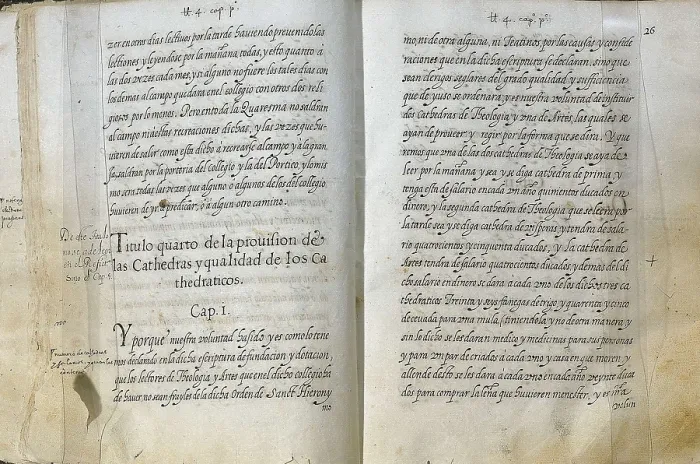 tt. 4. cap. pº.
zer en otros dias lectivos por la tarde haviendo prevenido las
lectiones y leyendose por la mañana todas, y esto quanto â
las dos vezes cada mes, y si alguno no fuere los tales dias con
los demas al campo quedara en el collegio con otros dos reli
giosos por lo menos. Pero en toda la Quaresma no saldran
al campo ni a estas recreaciones dichas, y las vezes que hu
uieren de salir como esta dicho â recrearse al campo y a la gran
ja, saldran por la porteria del collegio y la del Portico, y lo mis
mo sera todas las vezes que alguno o algunos de los del collegio
huuieren de yr a predicar, o â algun otro camino.
Titulo quarto de la prouision de
las Cathedras y qualidad de los Ca
thedraticos.
Cap. I.
Y porque nuestra voluntad ha sido y es como lo tene
mos declarado en la dicha escriptura de fundacion, y dotacion,
que los lectores de Theologia y Artes que en el dicho collegio ha
de hauer, no sean frayles de la dicha Orden de Sanct Hierony
mo
tt. 4. cap. pº.
26
mo, ni de otra alguna, ni Teatinos, por las causas, y conside
raciones que en la dicha escriptura se declaran, sino que
sean clerigos seglares del grado qualidad, y sufficiencia
que de yuso se ordenara, y es nuestra voluntad de instituir
dos Cathedras de Theologia, y vna de Artes, las quales se
ayan de proueer, y regir por la forma que se dira. Y que
remos que vna de las dos cathedras de Theologia se aya de
leer por la mañana, y sea y se diga cathedra de prima, y
tenga esta de salario en cada vn año quinientos ducados en
dinero, y la segunda cathedra de Theologia que se leerе por
la tarde sea y se diga cathedra de visperas, y tendra de sala
rio quatrocientos y cinquenta ducados, y la cathedra de
Artes tendra de salario quatrocientos ducados, y demas del di
cho salario en dinero se dara a cada vno de los dichos tres ca
thedraticos Treinta y seys fanegas de trigo, y quarenta y cinco
de ceuada para vna mula, (teniendola, y no de otra manera) y
sin lo dicho se les daran medico y medicinas para sus personas
y para vn par de criados â cada vno, y casa en que moren, y
allende desto se les dara a cada vno en cada vn año veynte duca
dos para comprar la leña que huuieren menester, y es nra
volun